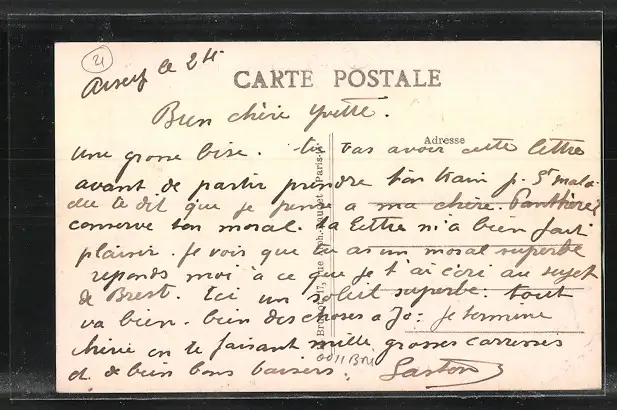 21
le 24
CARTE POSTALE
Bien chère Yvette.
Adresse
Une grosse bise. tu vas avoir cette lettre
avant de partir prendre ton train p. St malo.
elle te dit que je pense a ma chère.
conserve ton moral. ta lettre m'a bien fait
plaisir. Je vois que tu as un moral superbe
reponds moi à ce que je t'ai écri au sujet
de Brest. Ici un soleil superbe. tout
va bien. bien des choses a Jo. je termine
chérie en te faisant mille grosses caresses
et de bien bons baisers.
Gaston